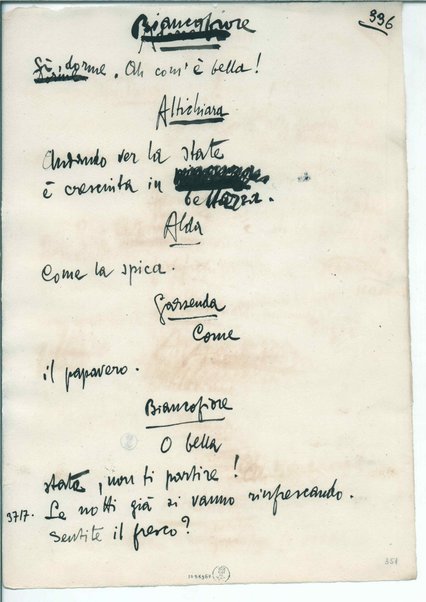 Biancofiore
396
Sì, dorme. Oh com'è bella!
Altichiara
Andando ver la state
è cresciuta in
bellezza.
Alda
Come la spica.
Garsenda
Come
il papavero.
Biancofiore
O bella
state, non ti partire!
3717. Le notti già si vanno rinfrescando.
Sentite il fresco?
351